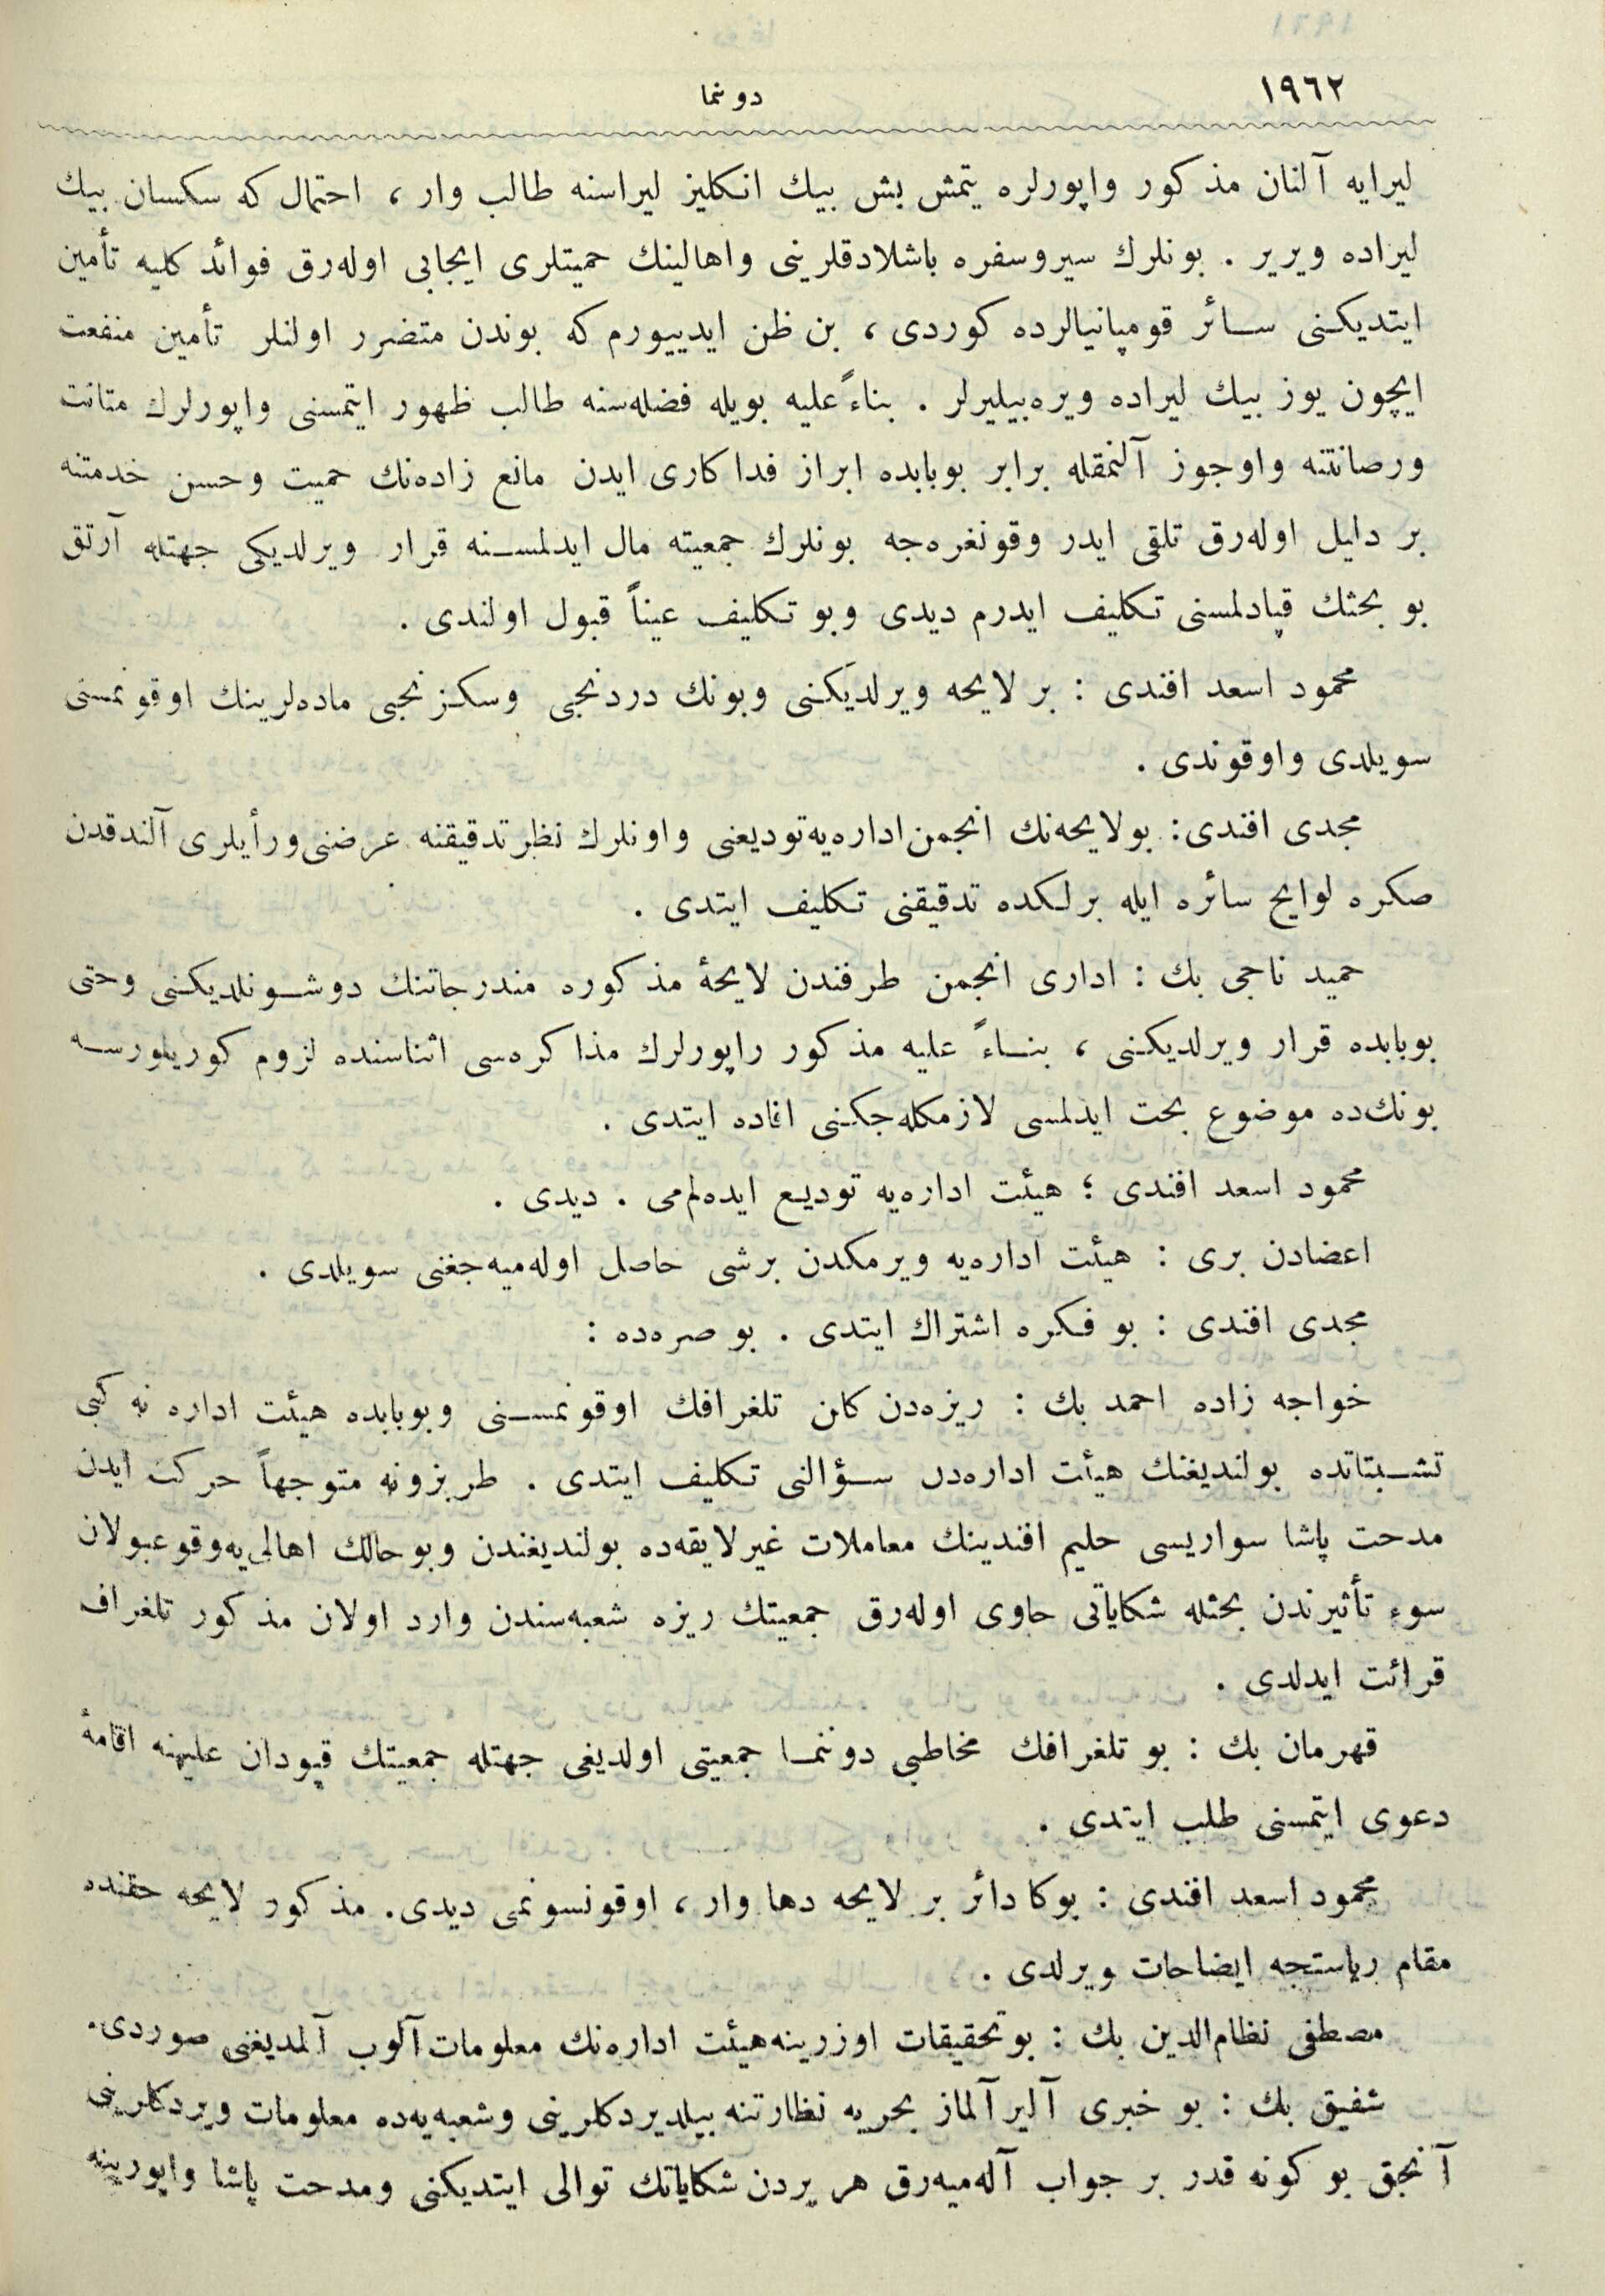 ١٩٦٢
دونما
ليرايه آلنان مذكور واپورلره يتمش بش بيك انكليز ليراسنه طالب وار ، احتمال كه سكسان بيك
ليراده ويرير . بونلرك سيروسفره باشلادقلرينی واهالينك حميتلری ايجابی اوله‌رق فوائد كليه تأمين
ايتديكنی سائر قومپانيالرده كوردی ، بن ظن ايدييورم كه بوندن متضرر اولنلر تأمين منفعت
ايچون يوز بيك ليراده ويره‌بيليرلر . بناءً عليه بويله فضله‌سنه طالب ظهور ايتمسنی واپورلرك متانت
ورصانتنه واوجوز آلنمقله برابر بوبابده ابراز فداكاری ايدن مانع زاده‌نك حميت وحسن خدمتنه
بر دليل اوله‌رق تلقی ايدر وقونغره‌جه بونلرك جمعيته مال ايدلمسنه قرار ويرلديكی جهتله آرتق
بو بحثك قپادلمسنی تكليف ايدرم ديدی وبو تكليف عيناً قبول اولندی .
محمود اسعد افندی : بر لايحه ويرلديكنی وبونك دردنجی وسكزنجی ماده‌لرينك اوقونمسنی
سويلدی واوقوندی .
مجدی افندی : بولايحه‌نك انجمن اداره‌يه توديعنی واونلرك نظر تدقيقنه عرضنی ورأيلری آلندقدن
صكره لوايح سائره ايله برلكده تدقيقنی تكليف ايتدی .
حميد ناجی بك : اداری انجمن طرفندن لايحهٔ مذكوره مندرجاتنك دوشونلديكنی وحتی
بوبابده قرار ويرلديكنی ، بناءً عليه مذكور راپورلرك مذاكره‌سی اثناسنده لزوم كوريلورسه
بونك‌ده موضوع بحت ايدلمسی لازمكله‌جكنی افاده ايتدی .
محمود اسعد افندی ؛ هيئت اداره‌يه توديع ايده‌لم‌می . ديدی .
اعضادن بری : هيئت اداره‌يه ويرمكدن برشی حاصل اوله‌ميه‌جغنی سويلدی .
مجدی افندی : بو فكره اشتراك ايتدی . بو صره‌ده :
خواجه زاده احمد بك : ريزه‌دن كلن تلغرافك اوقونمسنی وبوبابده هيئت اداره نه كبی
تشبثاتده بولنديغنك هيئت اداره‌دن سؤالنی تكليف ايتدی . طربزونه متوجهاً حركت ايدن
مدحت پاشا سواريسی حليم افندينك معاملات غيرلايقه‌ده بولنديغندن وبوحالك اهالی‌يه وقوعبولان
سوء تأثيرندن بحثله شكاياتی حاوی اوله‌رق جمعيتك ريزه شعبه‌سندن وارد اولان مذكور تلغراف
قرائت ايدلدی .
قهرمان بك : بو تلغرافك مخاطبی دوننما جمعيتی اولديغی جهتله جمعيتك قپودان عليهنه اقامهٔ
دعوی ايتمسنی طلب ايتدی .
محمود اسعد افندی : بوكا دائر بر لايحه دها وار ، اوقونسونمی ديدی . مذكور لايحه حقنده
مقام رياستجه ايضاحات ويرلدی .
مصطفی نظام‌الدين بك : بوتحقيقات اوزرينه هيئت اداره‌نك معلومات آلوب آلمديغنی صوردی .
شفيق بك : بو خبری آلير آلماز بحريه نظارتنه بيلديردكلرينی وشعبه‌يه‌ده معلومات ويردكلرينی
آنجق بو كونه قدر بر جواب آله‌ميه‌رق هر يردن شكاياتك توالی ايتديكنی ومدحت پاشا واپورينه